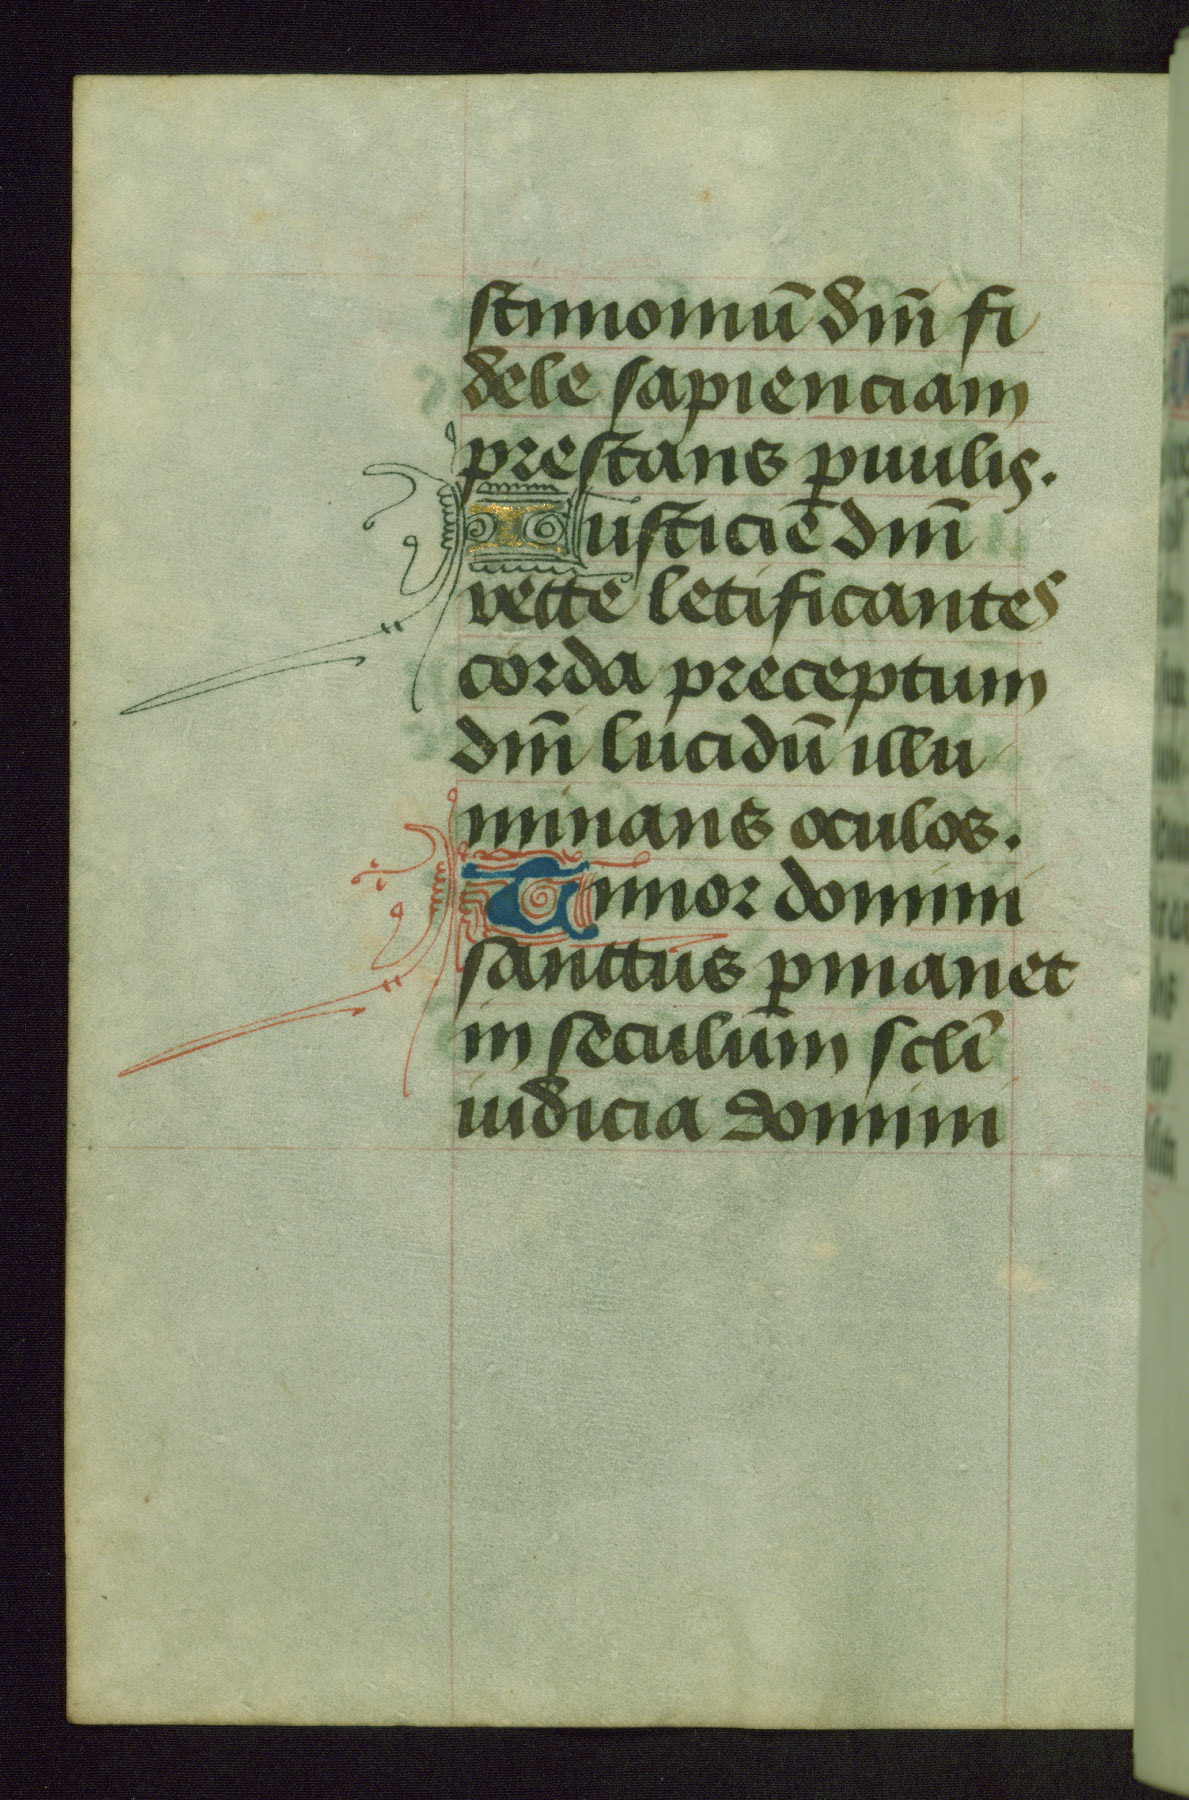 stimoniū dm̄ fi
dele sapienciam
prestans puulis.
Iusticie dm̄
recte letificantes
corda preceptum
dm̄ lucidū illu
minans oculos.
Timor domini
sanctus pmanet
in seculum scli
iudicia domini